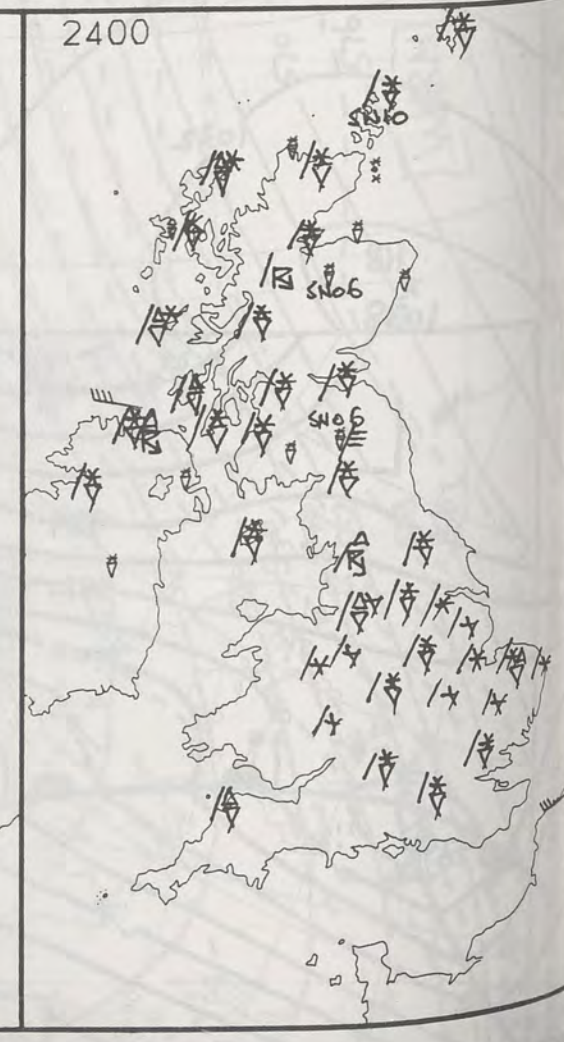 2400
SN10
SN06
SN06